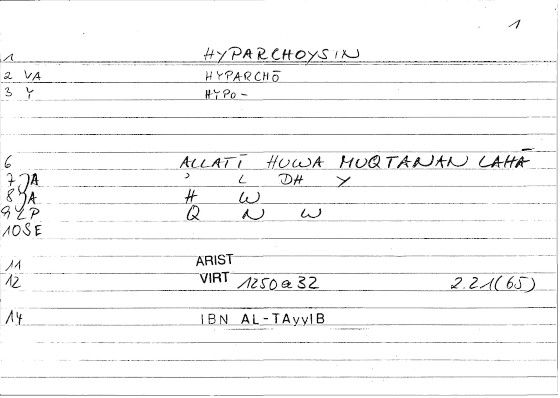 1
1 HYPARCHOYSIN
2 VA HYPARCHŌ
3 Y HYPO-
6 ALLATĪ HUWA MUQTANAN LAHĀ
7 JA ' L DH Y
8 JA H W
9 LP Q N W
10 SE
11 ARIST
12 VIRT 1250a32 2.21(65)
14 IBN AL-TAyyIB